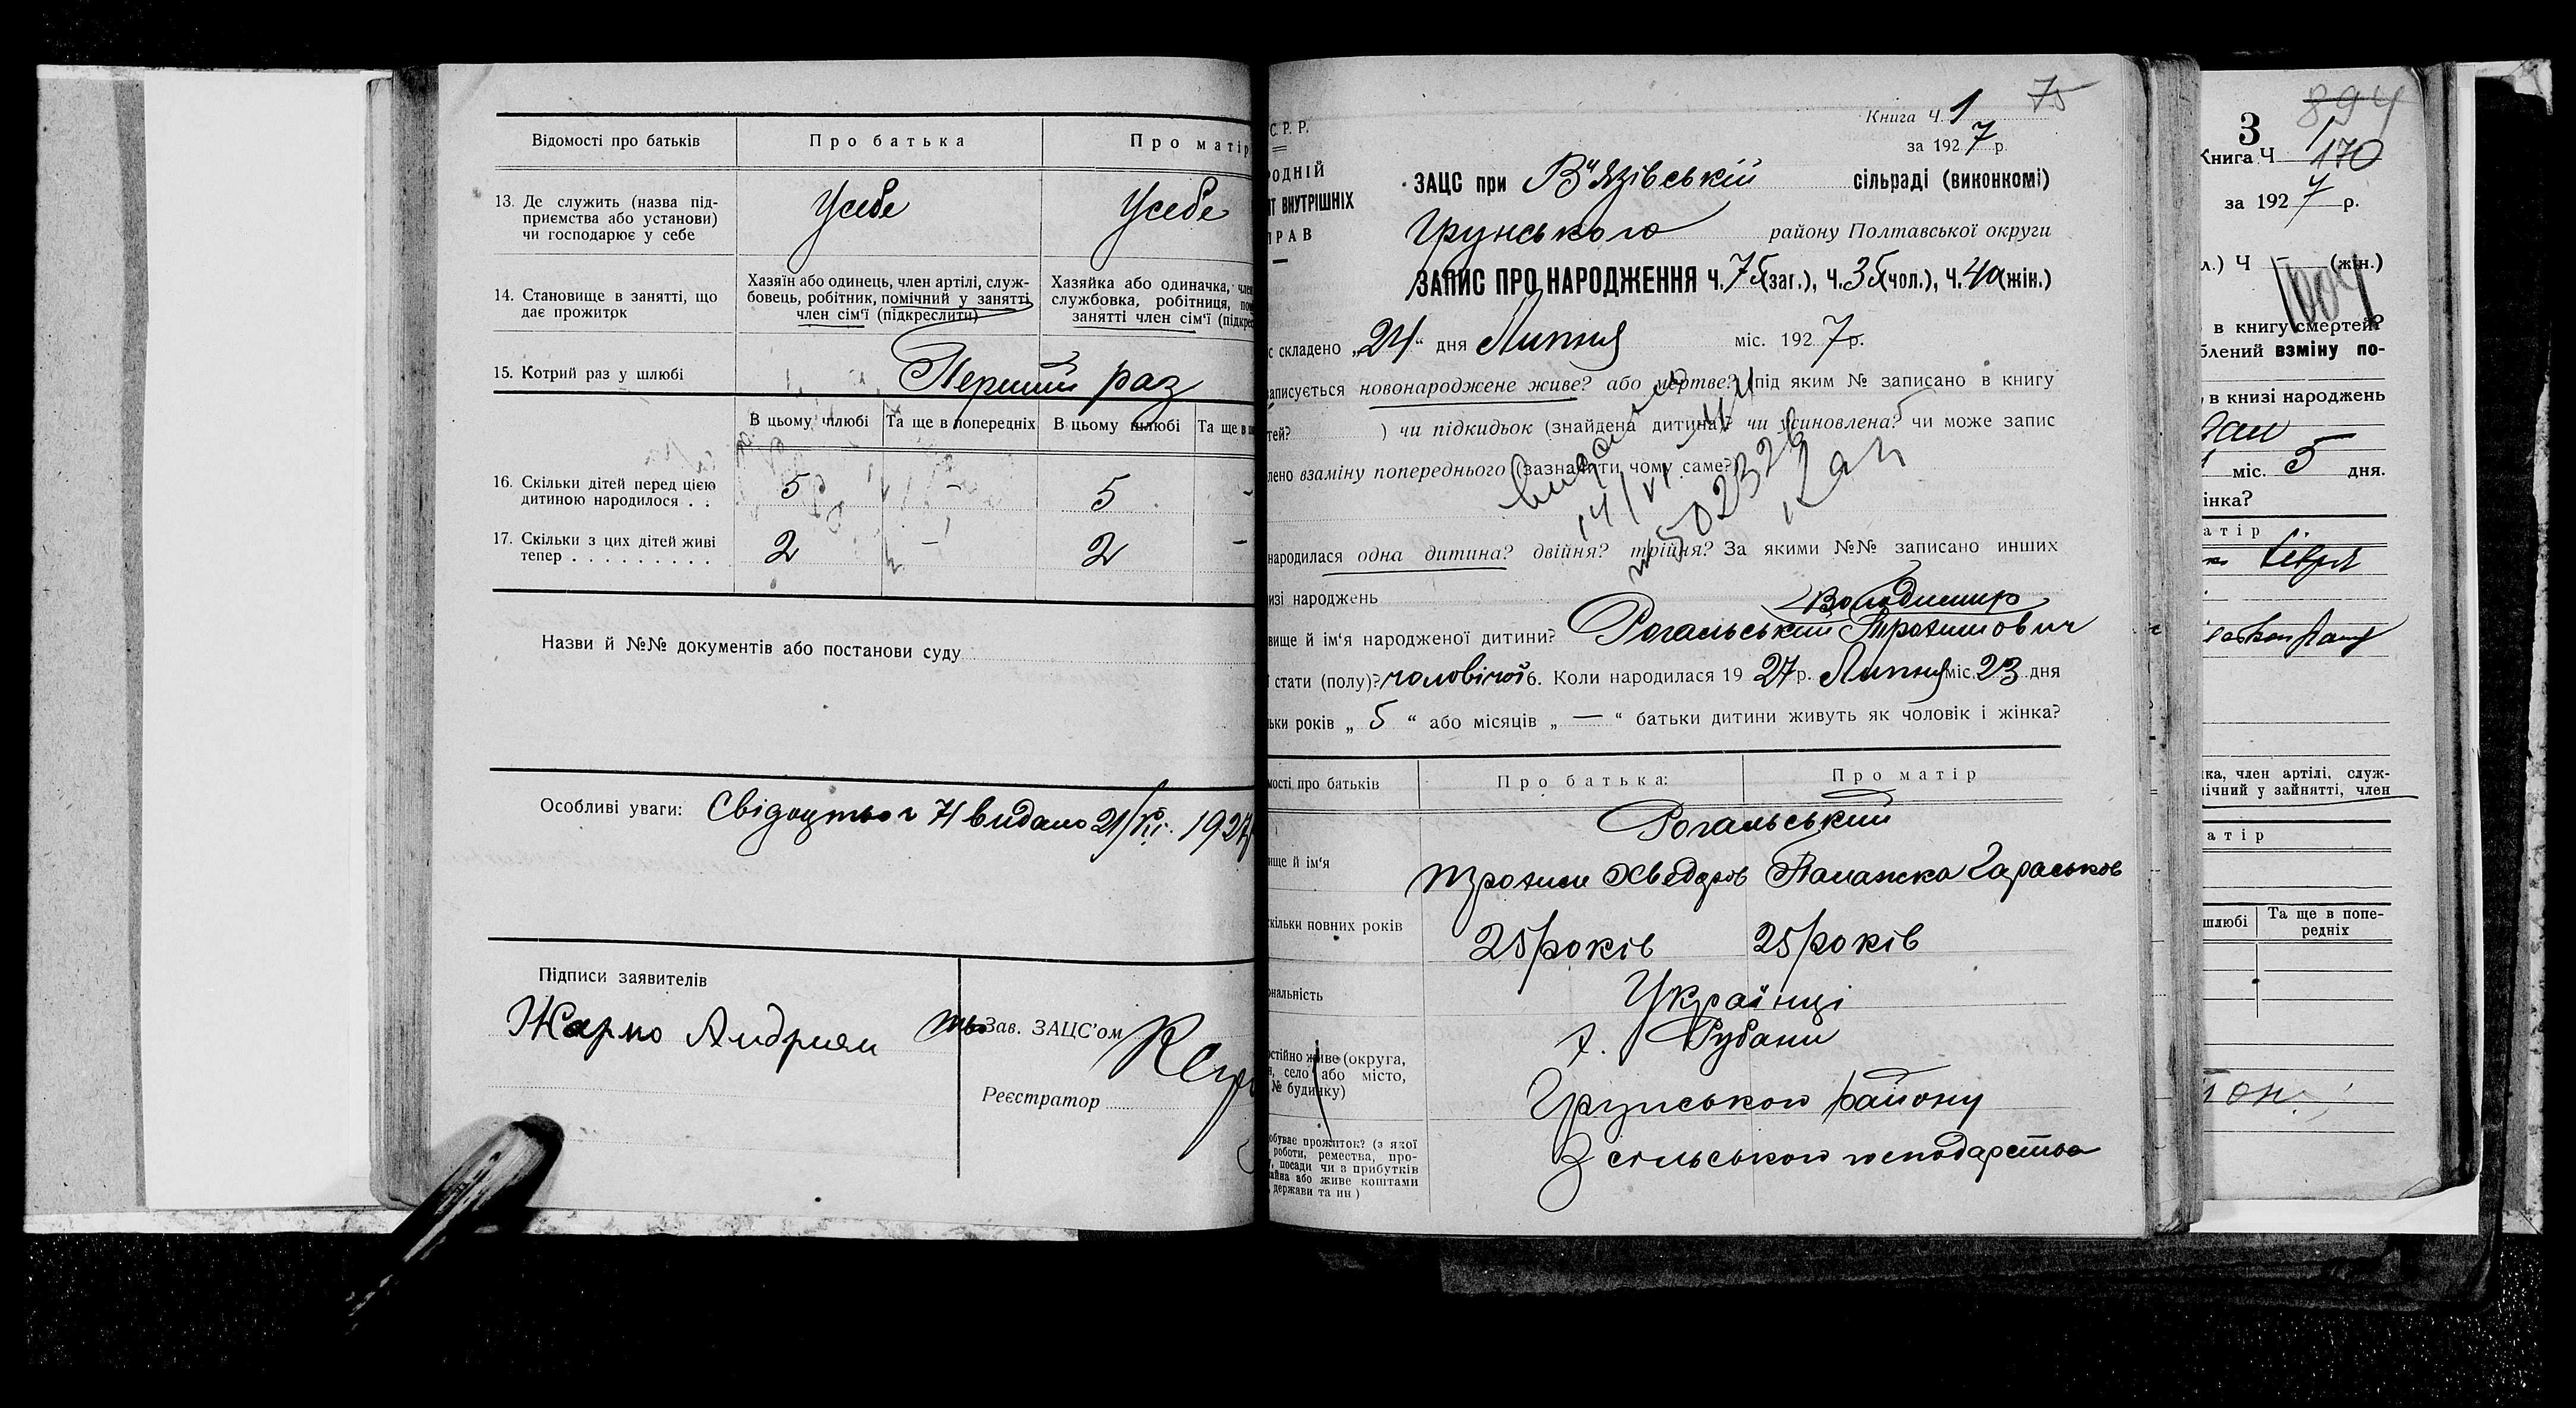 Відомості про батьків
Про батька
Про матір
13. Де служить (назва під-
приємства або установи)
чи господарює у себе
Усебе
Усебе
14. Становище в занятті, що
дає прожиток
Хазяїн або одинець, член артілі, служ-
бовець, робітник, помічний у занятті
член сім'ї (підкреслити)
Хазяйка або одиначка, член
службовка, робітниця,
занятті член сім'ї
15. Котрий раз у шлюбі
Перший раз
В цьому шлюбі
Та ще в попередніх
В цьому шлюбі
Та ще в
16. Скільки дітей перед цією
дитиною народилося . .
5
-
5
-
17. Скільки з цих дітей живі
тепер . . . . . . . . .
2
-
2
-
Назви й №№ документів або постанови суду
Особливі уваги: Свідоцтво ч 74 видано 21/XI. 1927
Підписи заявителів
Жарко Андриян
Зав. ЗАЦС'ом
Реєстратор
С. Р. Р.
РОДНІЙ
ВНУТРІШНІХ
РАВ
75
Книга Ч. 1
за 1927 р.
ЗАЦС при В'язівській сільраді (виконкомі)
Грунського району Полтавської округи
ЗАПИС ПРО НАРОДЖЕННЯ Ч. 75 (заг.), Ч. 35 (чол.), Ч. 40 (жін.)
с складено „24“ дня Липня міс. 1927 р.
записується новонароджене живе? або мертве? (під яким № записано в книгу
тей? ) чи підкидьок (знайдена дитина)? чи усиновлена? чи може запис
лено взаміну попереднього (зазначити чому саме?)
14/VI
502326
народилася одна дитина? двійня? трійня? За якими №№ записано инших
изі народжень
Володимир
вище й ім'я народженої дитини? Рогальський Трохимович
ї стати (полу)? чоловічої 6. Коли народилася 1927 р. Липня міс. 23 дня
ьки років „ 5 “ або місяців „ — “ батьки дитини живуть як чоловік і жінка?
мості про батьків
Про батька:
Про матір
Рогальський
ище й ім'я
Трохим Хведоров
Палажка Гараськов
скільки повних років
25 років
25 років
ональність
Українці
х. Рубани
остійно живе (округа,
, село або місто,
№ будинку)
Грунського району
обуває прожиток? (з якої
роботи, ремества, про-
, посади чи з прибутків
айна або живе коштами
, держави та ин)
З сільського господарства
894
3
1
Книга Ч 170
за 1927 р.
л.) Ч — (жін.)
в книгу смертей?
блений взміну по-
, в книзі народжень
міс. 5 дня.
інка?
атір
ка, член артілі, служ-
ічний у зайнятті, член
атір
шлюбі
Та ще в попе-
редніх